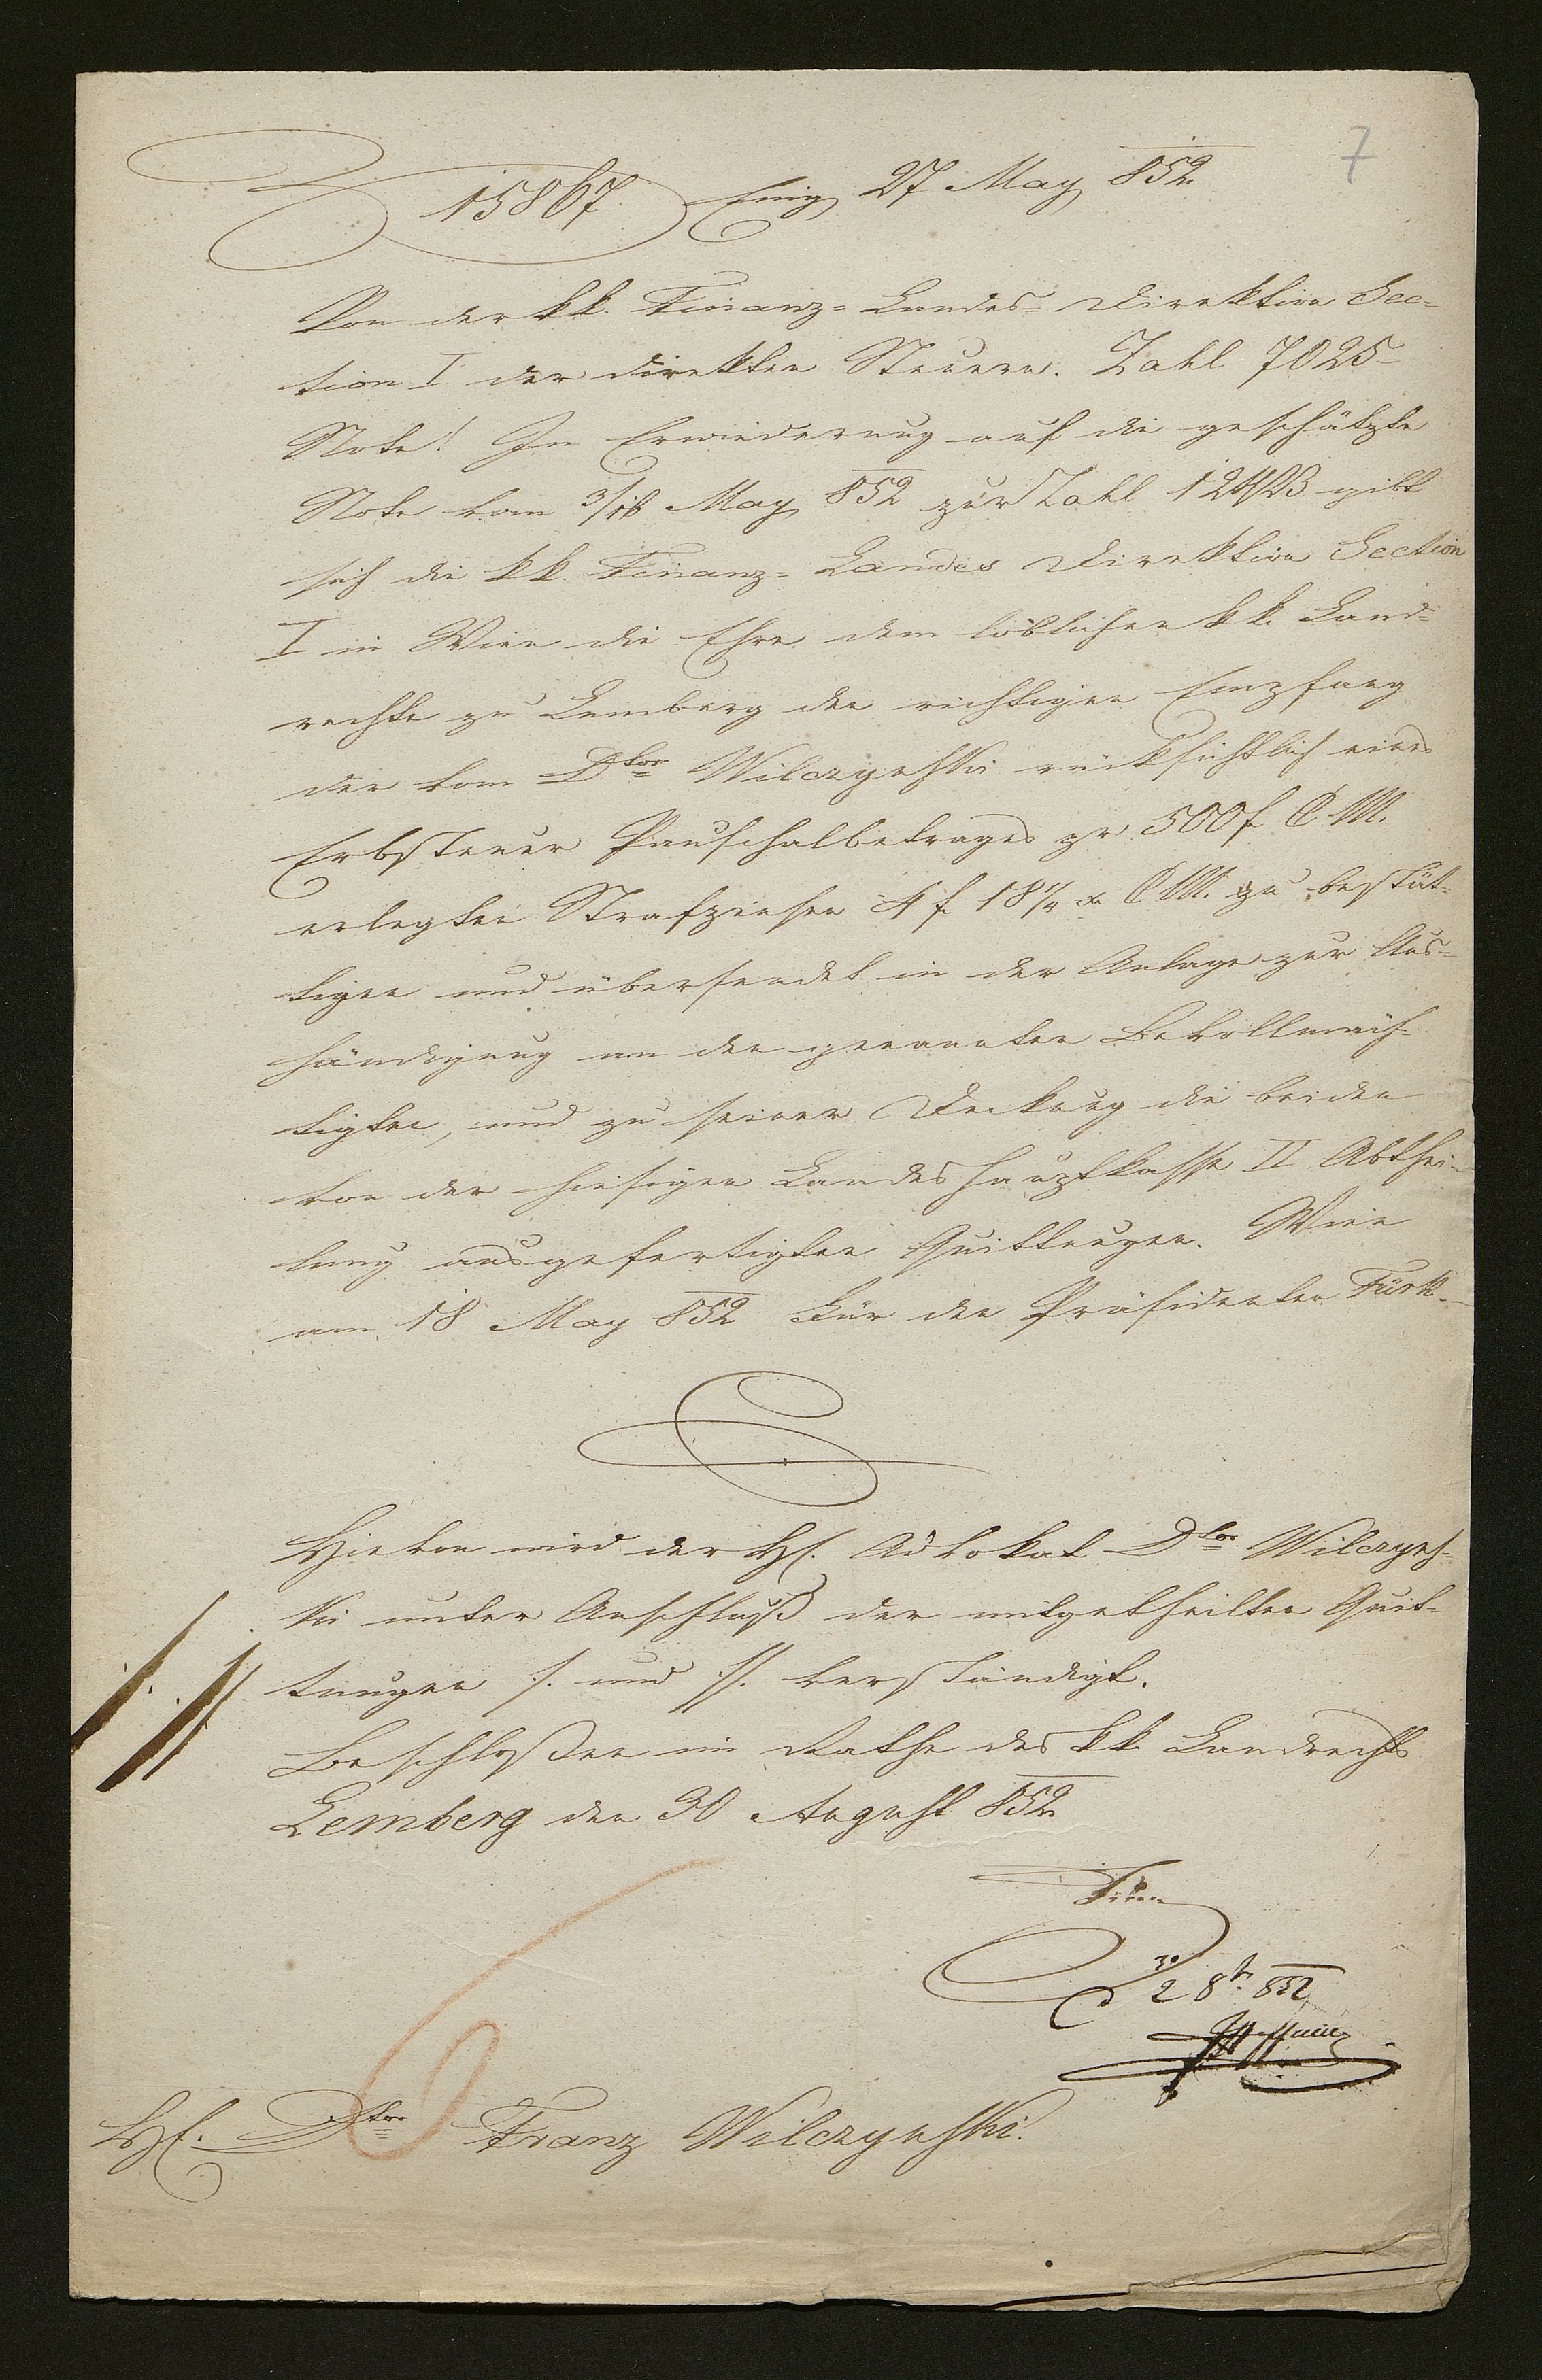 7
15867. Eing 27 May 852
Von der kk. Finanz= Landes= Direktion Sec=
tion I der direkten Steuern. Zahl 7025
Note! In Erwiederung auf die geschätzte
Note vom 3/16 May 852 zur Zahl 12423 gibt
sich die kk. Finanz= Landes Direktion Section
I in Wien die Ehre dem löblichen kk. Land=
rechte zu Lemberg den richtigen Empfang
der vom Dtor Wilczynski rücksichtlich eines
Erbsteuer Pauschalbetrages pr 500 f CM.
erlegten Strafzinsen 4 f 18 1/4 x CM. zu bestät=
tigen und übersendet in der Anlage zur Aus=
händigung an den genannten Bevollmäch=
tigten, und zu seiner Deckung die beiden
von der hiesigen Landeshauptkasse II Abthei=
lung ausgefertigten Quittungen. Wien
am 18 May 852 Für den Präsidenten Türk
Hievon wird der H. Advokat Dtor Wilczyns=
ki unter Anschluß der mitgetheilten Quit=
tungen ./. und .//. verständigt.
Beschloßen im Rathe des kk Landrechts
Lemberg den 30 August 852
30/2 8b 852
H. Dtor Franz Wilczynski.